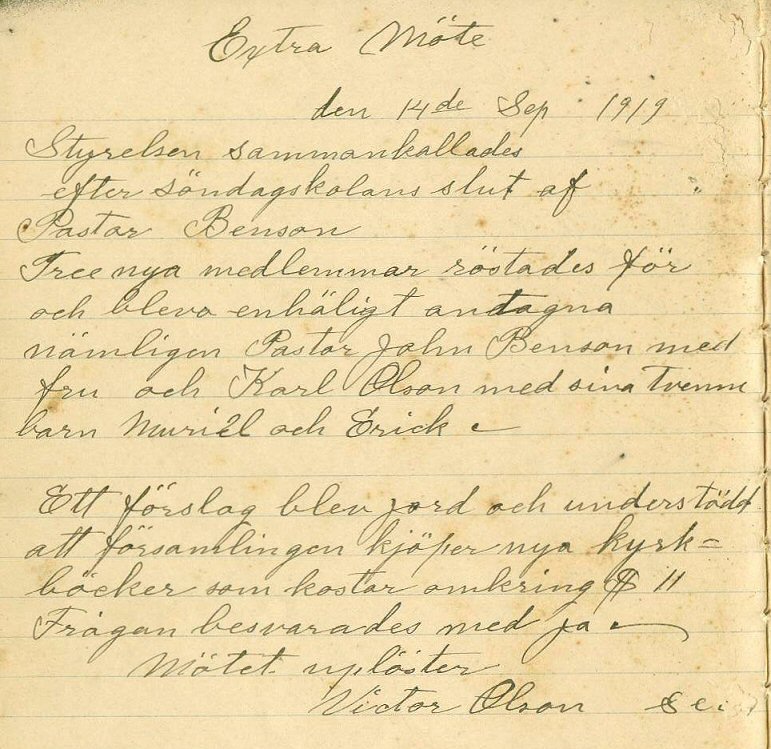 Extra Möte
den 14de Sep 1919
Styrelsen sammankallades
efter söndagskolans slut af
Pastor Benson
Tree nya medlemmar röstades för
och blevo enhäligt andtagna
nämligen Pastor John Benson med
fru och Karl Olson med sina tvenne
barn Muriel och Erick
Ett förslag blev jord och understödt
att församlingen kjöper nya kyrk=
böcker som kostar omkring $ 11
Frågan besvarades med ja
Mötet uplöstes
Victor Olson sec.